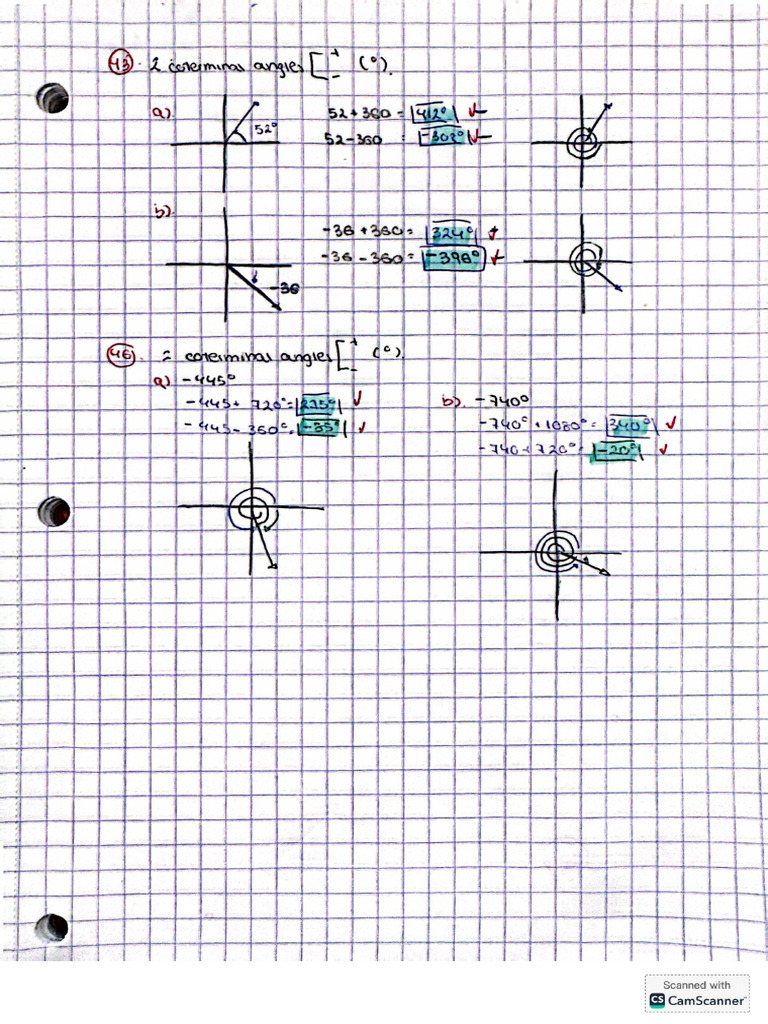 43. 2 coterminal angles [ + - (°).
a).
52°
52+360 = 412° ✓
52-360 = -308° ✓
b).
-36
-36+360= 324° ✓
-36-360= -396° ✓
46. 2 coterminal angles [ + - (°).
a) -445°
-445+ 720°= 275° ✓
-445- 360°= -85° ✓
b). -740°
-740°+1080°= 340° ✓
-740+720°= -20° ✓
Scanned with
CS CamScanner